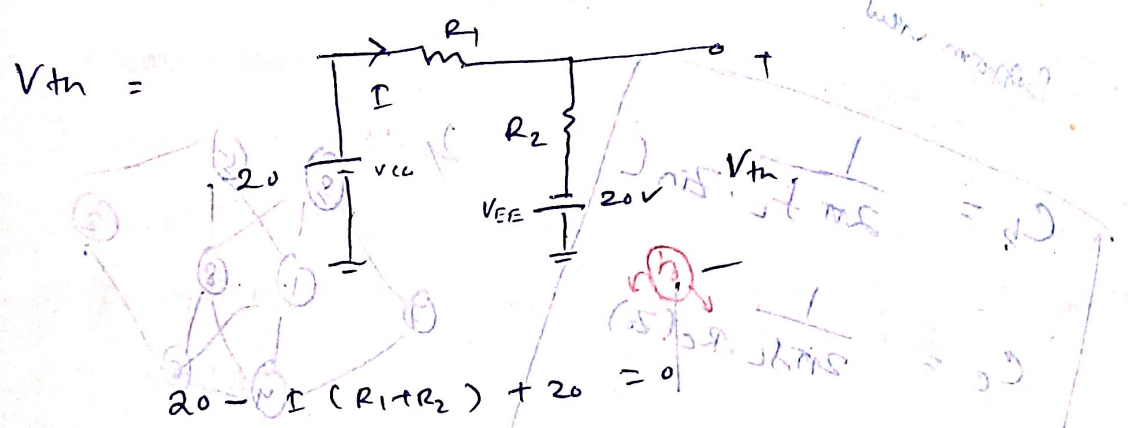 Vth =
R1
I
R2
+
20
VCC
VEE
20V
Vth
-
20 - I (R1+R2) + 20 = 0